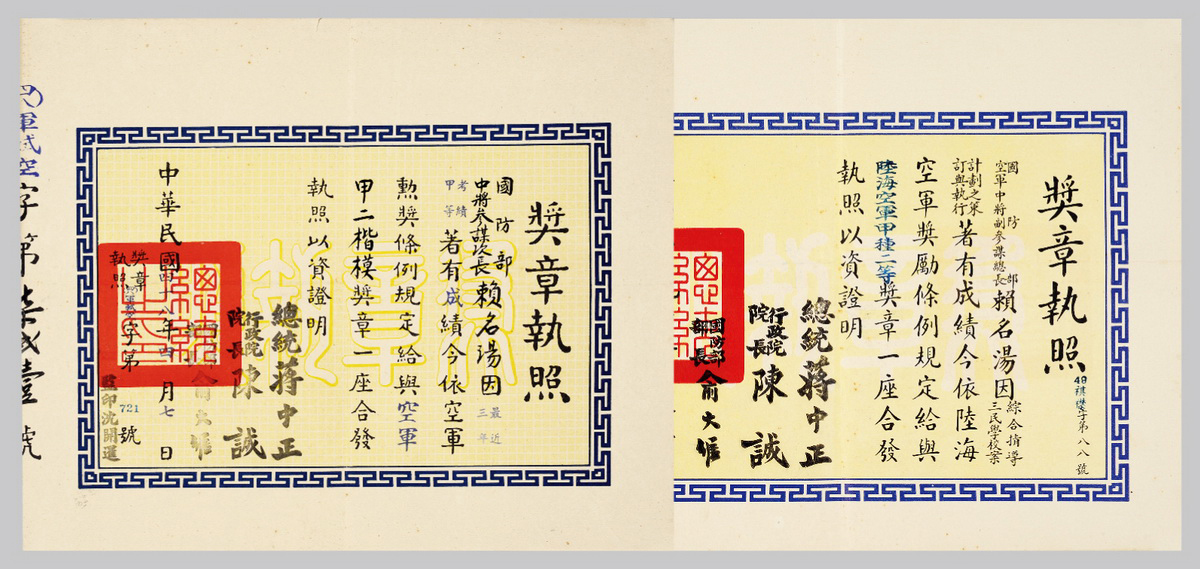 獎章執照
49祺獎字第八八號
國防部
空軍中將副參謀總長賴名湯因綜合指導
三民學校案
計劃之策
訂與執行著有成績今依陸海
空軍獎勵條例規定給與
陸海空軍甲種二等獎章一座合發
執照以資證明
總統蔣中正
行政院
院長陳誠
國防部
部長俞大維
獎章執照
國防部
中將參謀次長賴名湯因最近
三年
考績
甲等著有成績今依空軍
勳獎條例規定給與空軍
甲二楷模獎章一座合發
執照以資證明
總統蔣中正
行政院
院長陳誠
俞大維
中華民國四十八年四月七日
獎章
執照
字第721號
監印沈開運
字第柒貳壹號